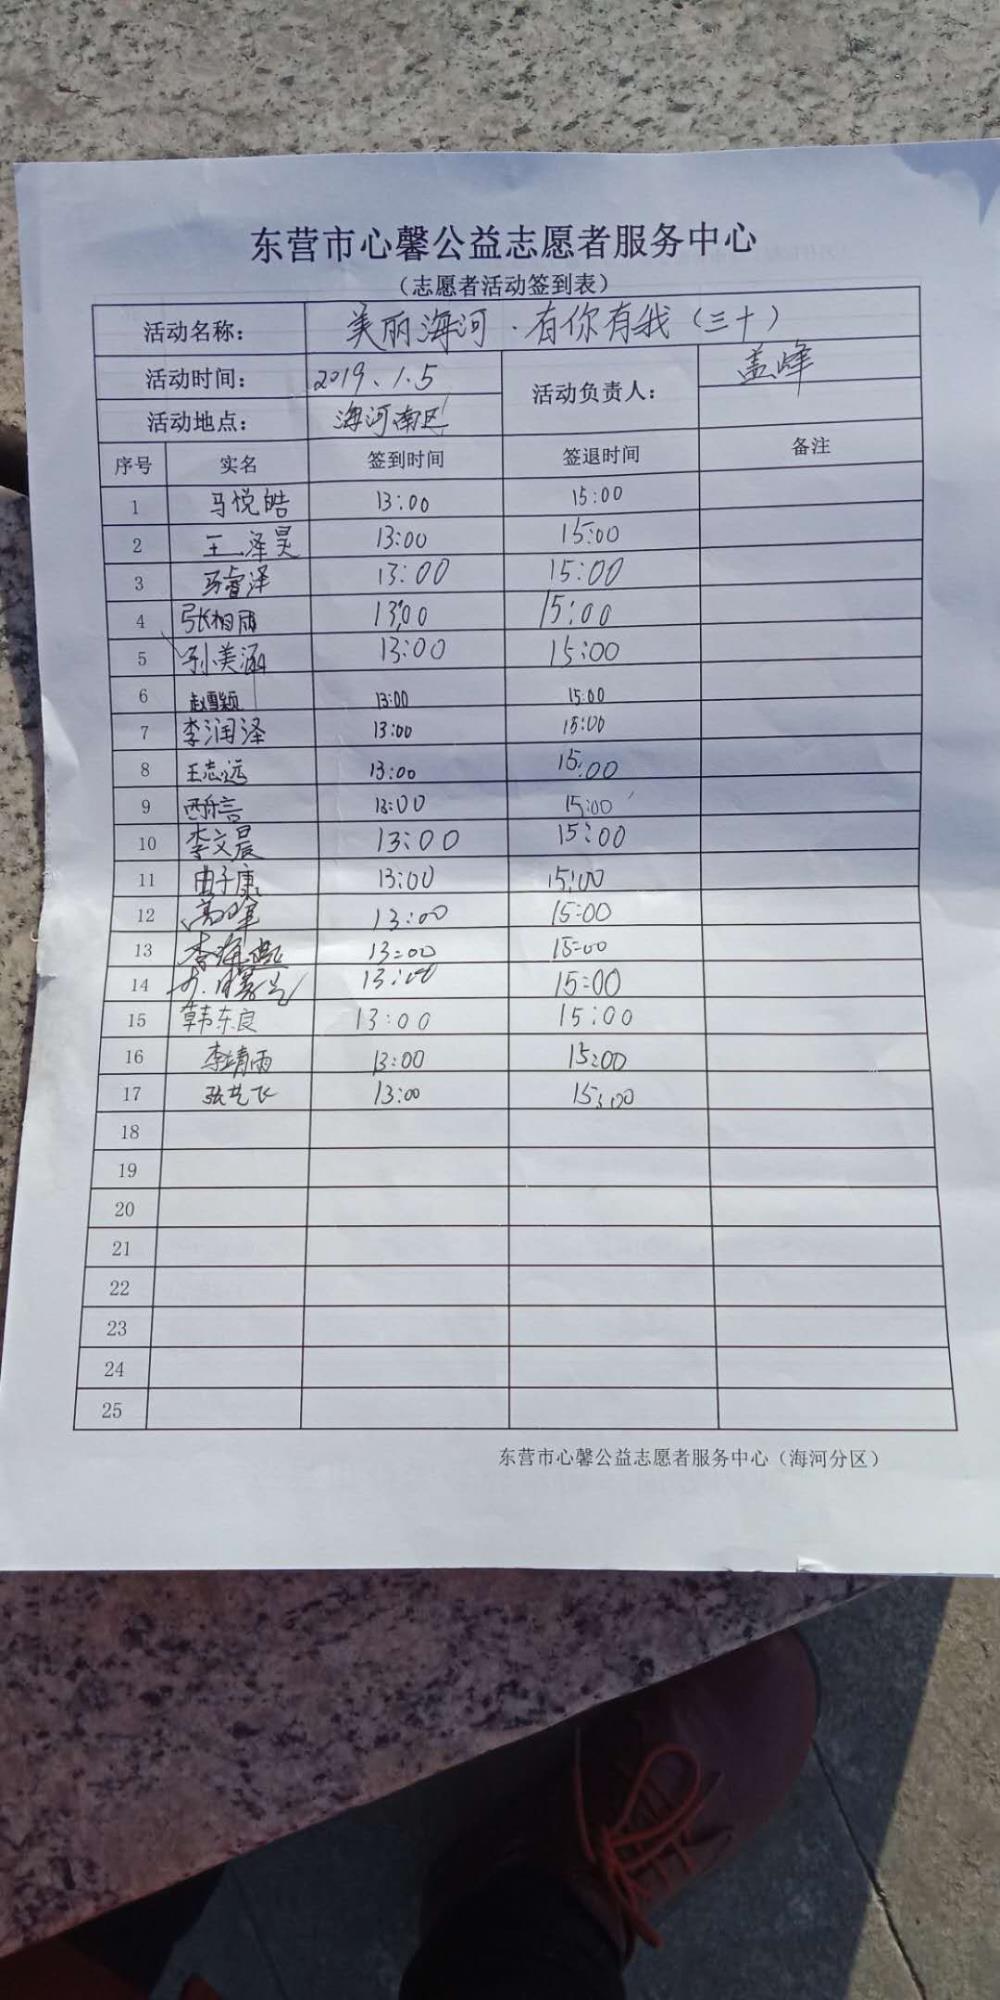 东营市心馨公益志愿者服务中心
（志愿者活动签到表）
活动名称： 美丽海河·有你有我（三十）
活动时间： 2019.1.5 活动负责人： 盖峰
活动地点： 海河南区
序号 实名 签到时间 签退时间 备注
1 马悦皓 13:00 15:00
2 王泽昊 13:00 15:00
3 马睿泽 13:00 15:00
4 张相雨 13:00 15:00
5 孙美涵 13:00 15:00
6 赵雪颖 13:00 15:00
7 李润泽 13:00 15:00
8 王志远 13:00 15:00
9 13:00 15:00
10 李文晨 13:00 15:00
11 由子康 13:00 15:00
12 13:00 15:00
13 李海燕 13:00 15:00
14 13:00 15:00
15 韩东良 13:00 15:00
16 李靖雨 13:00 15:00
17 张艺飞 13:00 15:00
18
19
20
21
22
23
24
25
东营市心馨公益志愿者服务中心（海河分区）